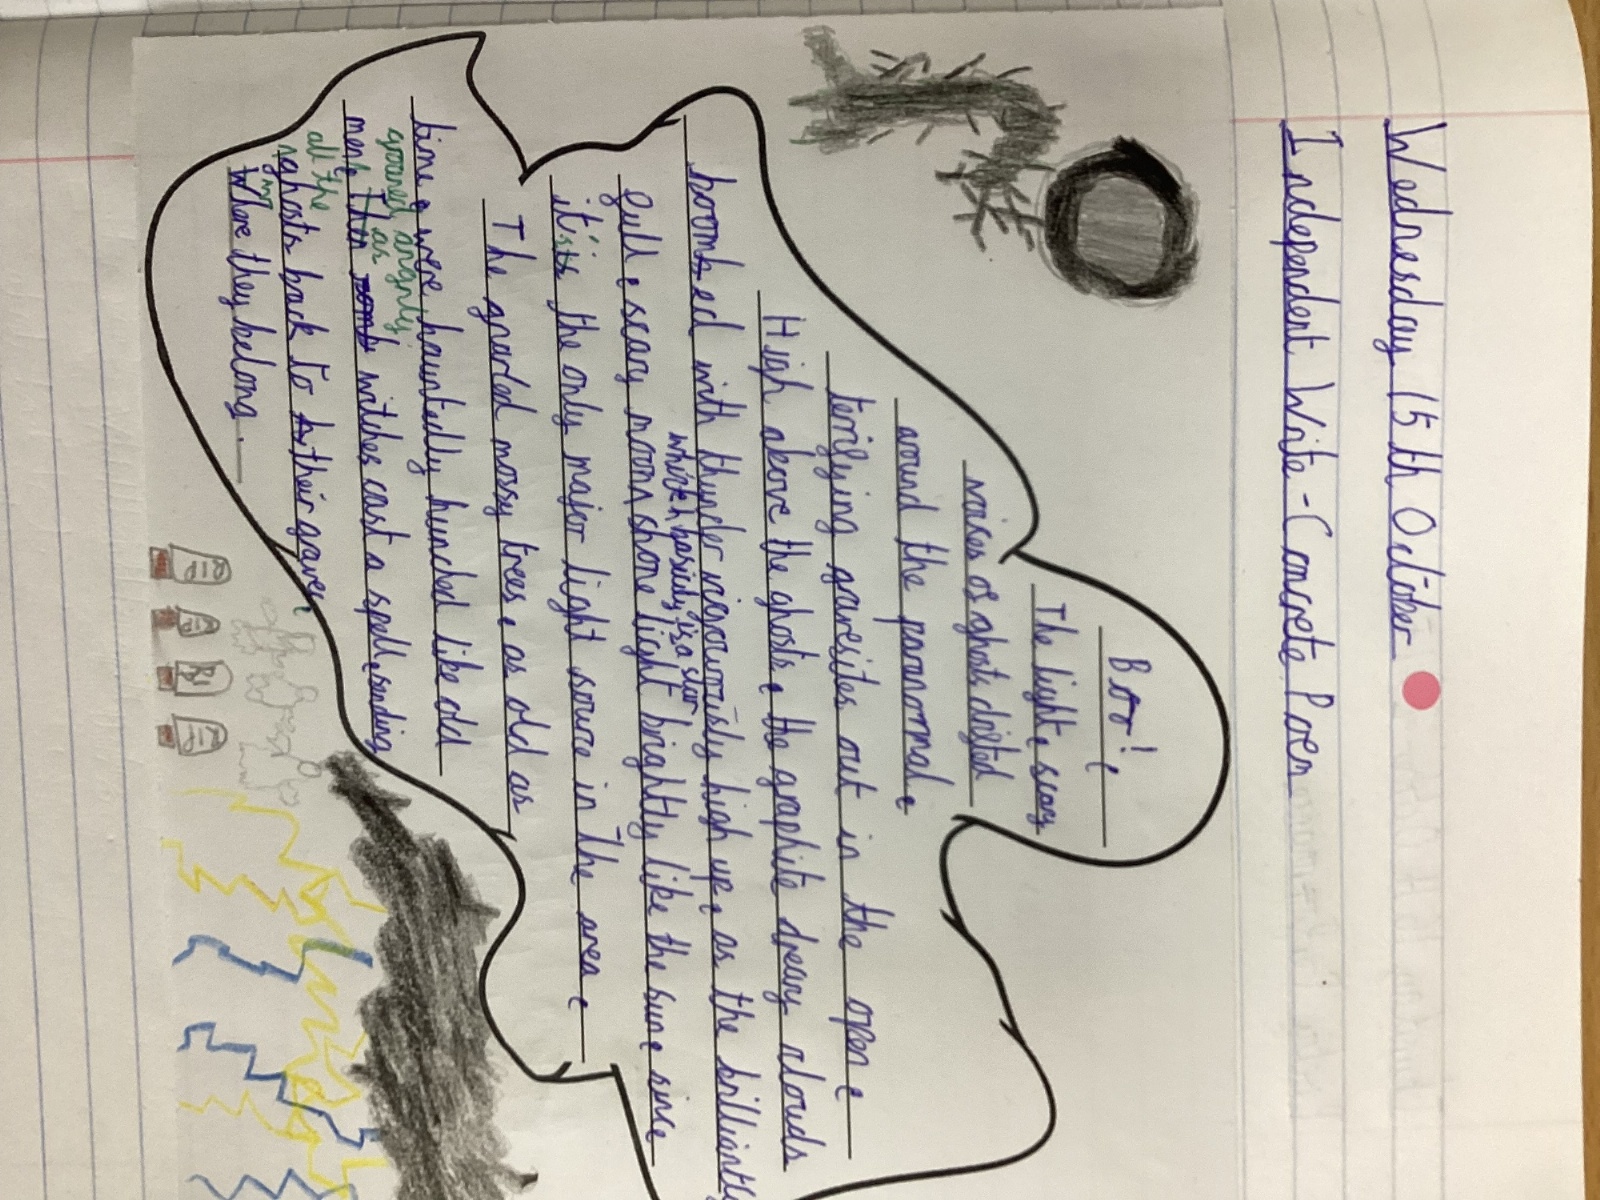 Wednesday 15th October
Independent Write - Concrete Poem
Boo!,
The light, scary
noises of ghosts drifted
around the paranormal,
terrifying gravesites out in the open,
High above the ghosts, the graphite dreary clouds
boomed with thunder vigourously high up, as the brilliantly
which basicly is a star
full, scary moon shone light brightly like the sun, since
it is the only major light source in the area,
The gnarled mossy trees, as old as
time, were hauntedly hunched like old
groaned angrily
men, witches cast a spell, sending
as
all the
ghosts back to their graves,
where they belong.
RIP
RIP
RIP
RIP